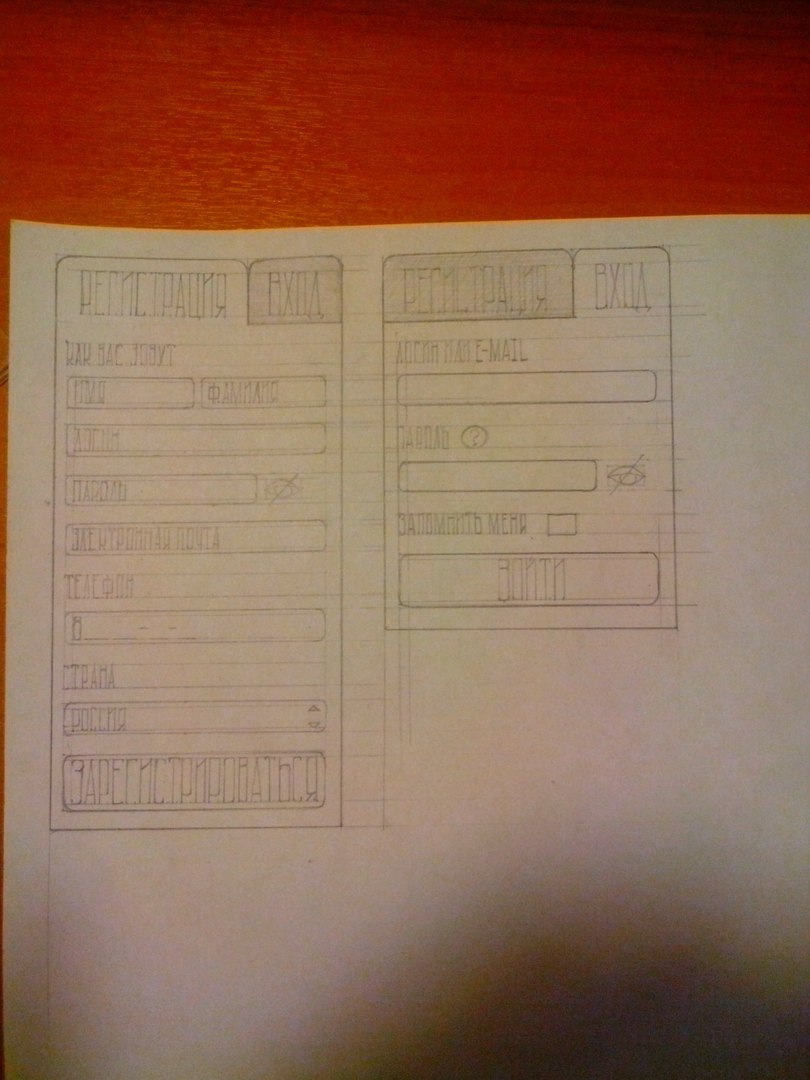 РЕГИСТРАЦИЯ ВХОД
КАК ВАС ЗОВУТ
ИМЯ ФАМИЛИЯ
ЛОГИН
ПАРОЛЬ
ЭЛЕКТРОННАЯ ПОЧТА
ТЕЛЕФОН
8___ __ - _ - __
СТРАНА
РОССИЯ
ЗАРЕГИСТРИРОВАТЬСЯ
РЕГИСТРАЦИЯ ВХОД
ЛОГИН ИЛИ E-MAIL
ПАРОЛЬ ?
ЗАПОМНИТЬ МЕНЯ
ВОЙТИ